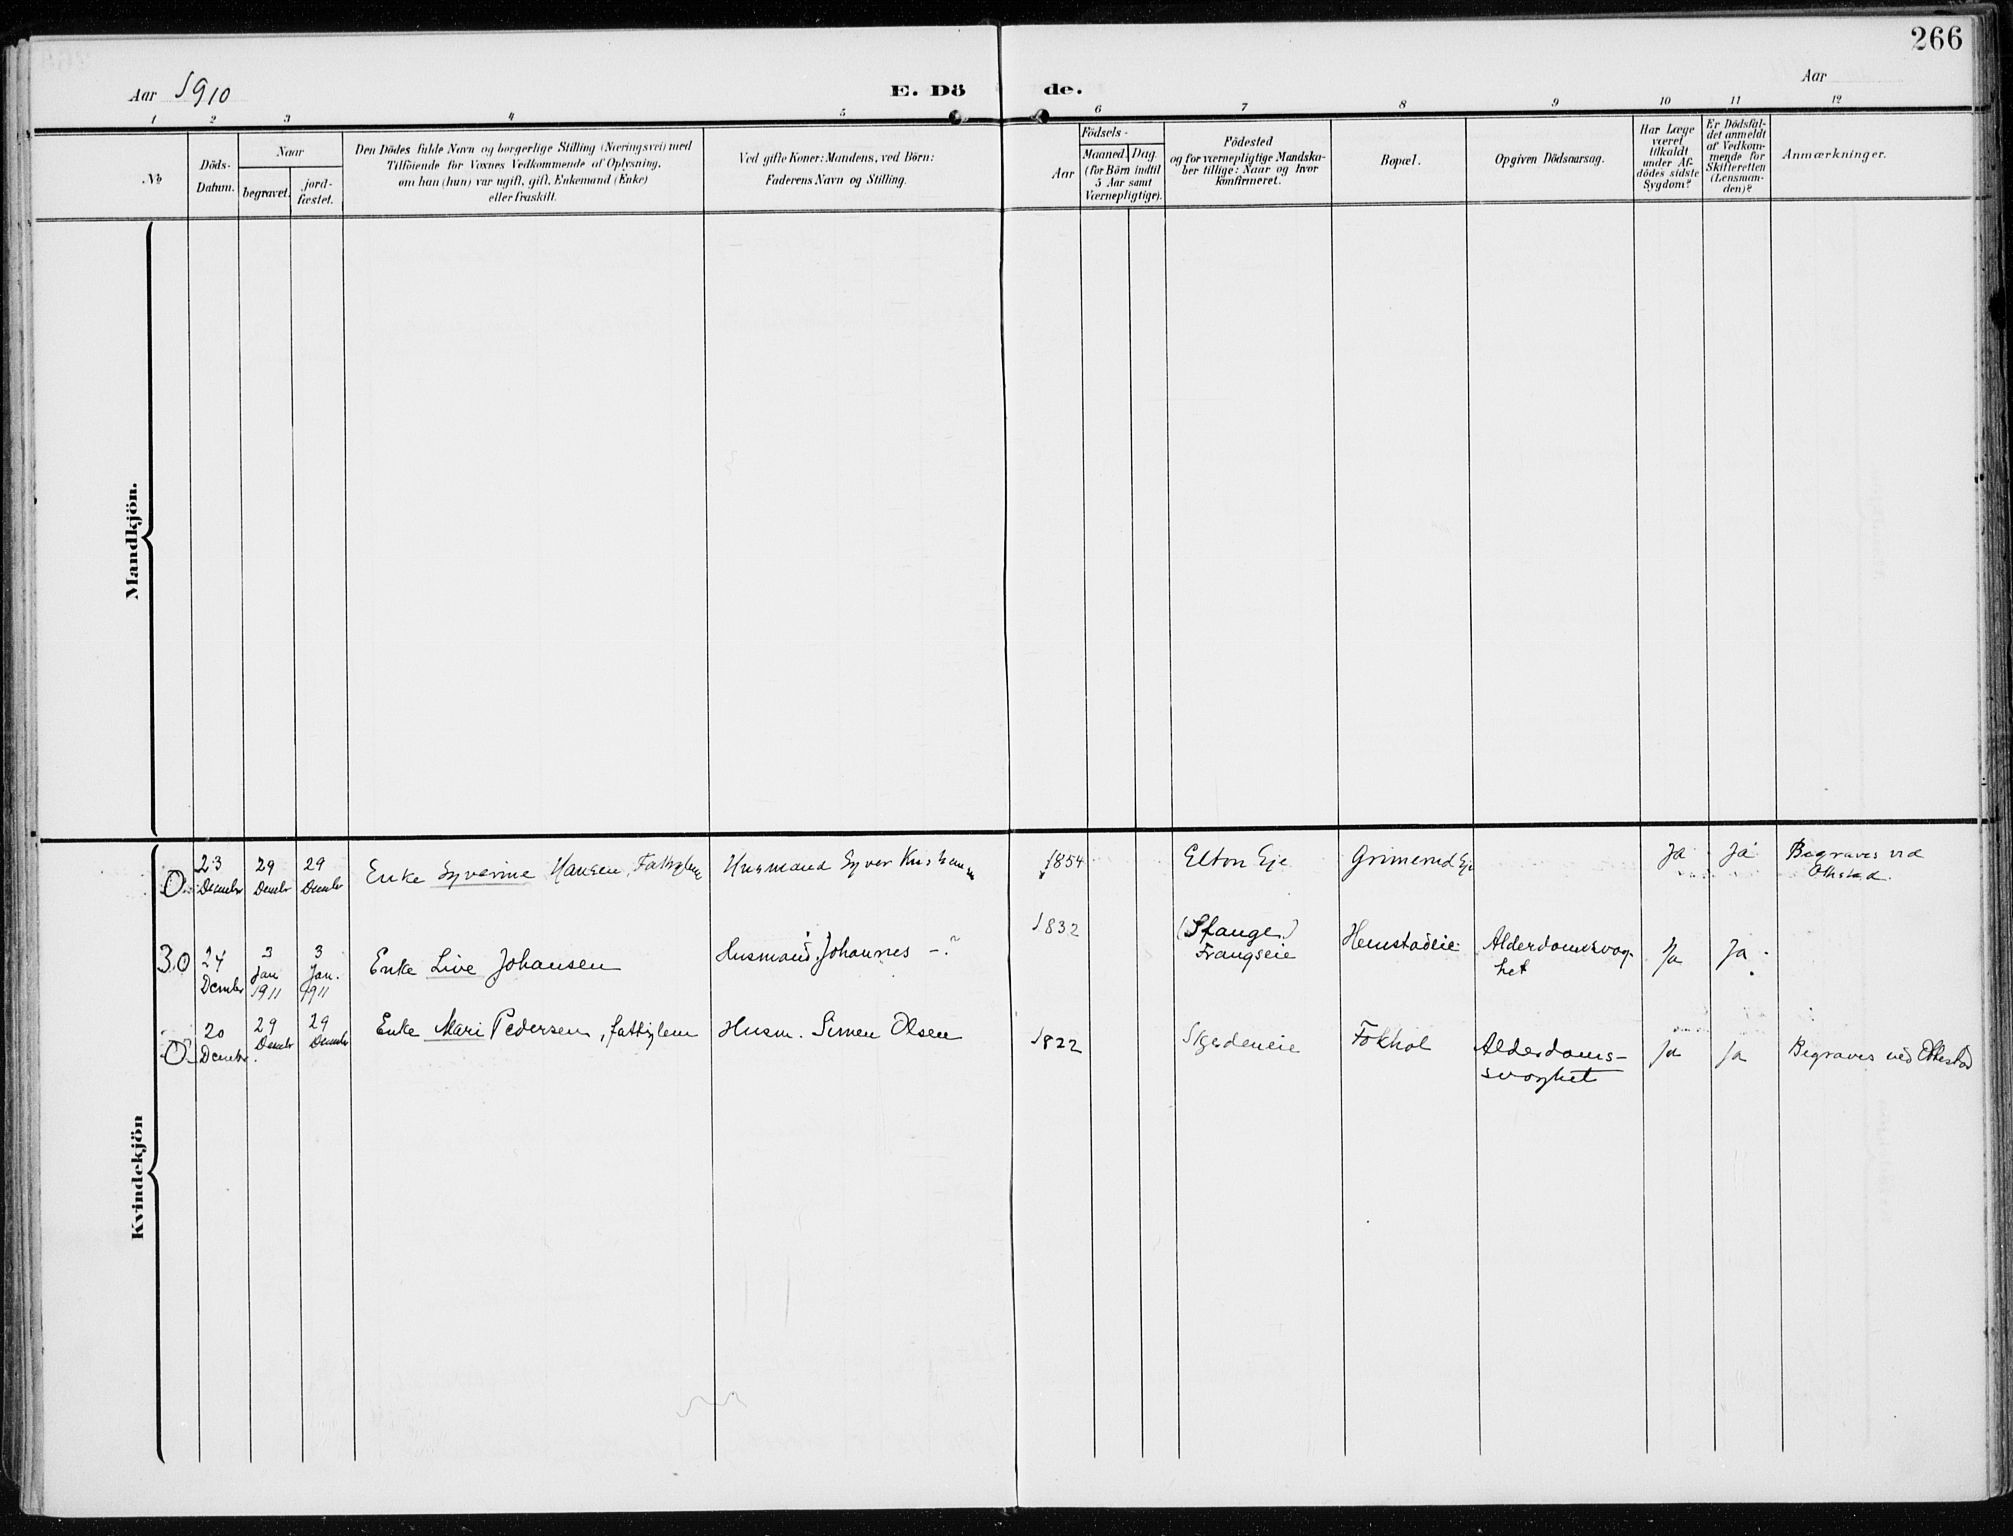 266
Aar 1910
E. Dö de.
Aar
1 2 3 4 5 6 7 8 9 10 11 12
No
Döds-
Datum.
Naar
begravet.
jord-
fæstet.
Den Dödes fulde Navn og borgerlige Stilling (Næringsvei) med
Tilföiende for Voxnes Vedkommende af Oplysning,
om han (hun) var ugift, gift, Enkemand (Enke)
eller fraskilt.
Ved gifte Koner: Mandens, ved Börn:
Faderens Navn og Stilling.
Födsels-
Aar
Maaned. Dag.
(for Börn indtil
5 Aar samt
Værnepligtige).
Födested
og for værnepligtige Mandska-
ber tillige: Naar og hvor
konfirmeret.
Bopæl.
Opgiven Dödsaarsag.
Har Læge
været
tilkaldt
under Af-
dödes sidste
Sygdom?
Er Dödsfal-
det anmeldt
af Vedkom-
mende for
Skifteretten
(Lensman-
den)?
Anmærkninger.
Mandkjön.
Kvindekjön
0. 23 Decembr 29 Decmbr 29 Decmbr Enke Syverine Hansen, Fattiglem Husmand Syver 1854 Elton Eje Grimerud Eje Ja Ja Begraves ved
Ottestad.
30 24 Decmbr 3 Jan 1911 3 Jan. 1911 Enke Live Johansen Husmand Johannes —? 1832 (Stange)
Frangseie Hemstadeie Alderdomssvag-
het Ja Ja
0. 20 Decmbr. 29 Decmbr 29 Decmbr Enke Mari Pedersen, fattiglem Husm. Simen Olsen 1822 Skjerdeneie Fokhol Alderdoms-
svaghet Ja Ja Begraves ved Ottestad